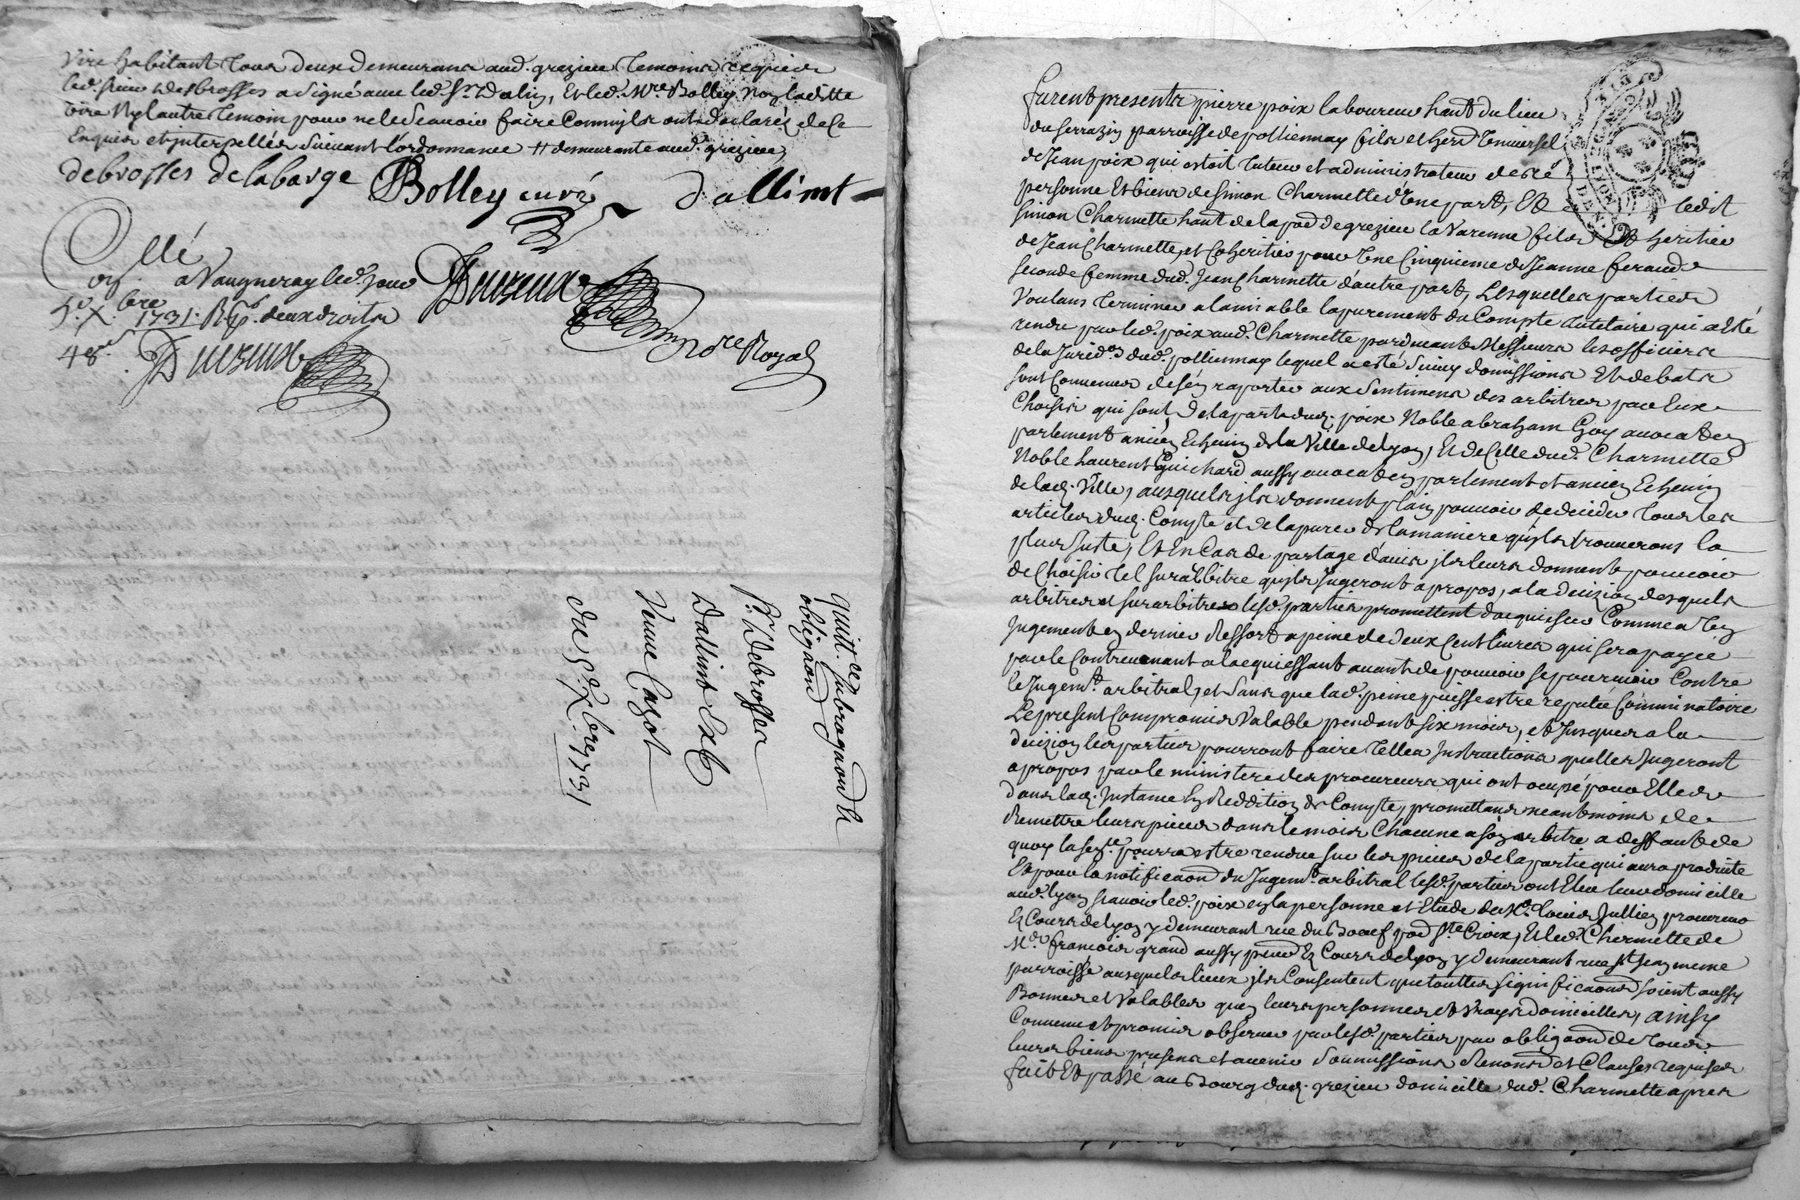 vire habitant tous deux demeurans aud. grezieu temoins requis
led. sieur desbrosses a signé avec led. Sr. Dalin, et led. Mre Bolley non laditte
vire ny l'autre temoin pour ne le scavoir faire comm'ils ont declaré de ce
enquis et interpellés suivant l'ordonnance # demeurante aud. grezieu
debrosses delabarge Bolley curé dallint
Collé
a Vaugneray led. jour
5e Xbre 1731. R deux droits
48s.
Duvernay
Duvernay nore Royal
quitce subrogaon &
obligaon
Sr. Debrosses
Dallint &
Jeanne Cazot
du 5e Xbre 1731
furent presents pierre poix laboureur hant du lieu
du serrazin parroisse de pollionnay fils et herd. universel
de Jean poix qui estoit tuteur et administrateur de la
personne et biens de simon Charmette d'une part, Et ledit
simon Charmette hant de la pad de grezieu la Varenne fils et heritier
de Jean Charmette et coheritier pour une cinquieme de Jeanne feraud
seconde femme dud. Jean Charmette d'autre part, Lesquelles parties
Voulans terminer a lamiable lapurement du Compte tutelaire qui a eté
rendu par led. poix aud. Charmette pardevant Messieurs les officiers
de la Juridon dud. pollionnay lequel a esté suivy d'omissions et debats
sont convenues de s'en raporter aux sentimens des arbitres par eux
Choisis qui sont de la part dud. poix Noble abraham Goy avocat en
parlement ancien Echevin de la Ville de lyon, Et de Celle dud. Charmette
Noble Laurent Guichard aussy avocat en parlement et ancien Echevin
de lad. Ville, ausquels ils donnent plain pouvoir de decider tous les
articles dud. Compte et de lapurer de la maniere qu'ils trouverons la
plus juste, Et En Cas de partage d'avis ils leurs donnent pouvoir
de Choisir tel surarbitre qu'ils Jugeront a propos, a la decizion desquels
arbitres et surarbitres lesd. parties promettent d'acquiescer Comme a un
Jugement en dernier Ressort a peine de deux cent livres qui sera payée
par le Contrevenant a lacquiessant avant de pouvoir se pourvoir Contre
le Jugemt. arbitral, et sans que lad. peine puisse estre reputée Comminatoire
Le present Compromis Valable pendant six mois, et Jusques a la
decizion les parties pourront faire telles Instructions qu'elles Jugeront
a propos par le ministere des procureurs qui ont ocupé pour Elles
dans lad. Instance En Reddition de Compte, promettans neantmoins de
Remettre leurs pieces dans le mois Chacune a son arbitre a deffaut de
quoy la sence. pourra estre rendue sur les pieces de la partie qui aura produitte
Et pour la notificaon du Jugemt. arbitral lesd. parties ont Eleu leur domicille
aud. lyon scavoir led. poix en la personne et Etude de Me. Louis Jullien procureur
Es Cours de lyon y demeurant rue du Boeuf pad Ste. Croix, Et led. Chermette de
Me. francois grand aussy procr Es Cours de lyon y demeurant rue St. Jean meme
parroisse ausquels lieux ils Consentent que touttes significaons soient aussy
Bonnes et Valables qu'en leurs personnes et Vrays domicilles, ainsy
Convenu et promis observer par lesd. parties par obligaon de tous
leurs biens presens et avenir soumissions Renonons et Clauses requises
fait Et passé au Bourg dud. grezieu domicille dud. Charmette apres